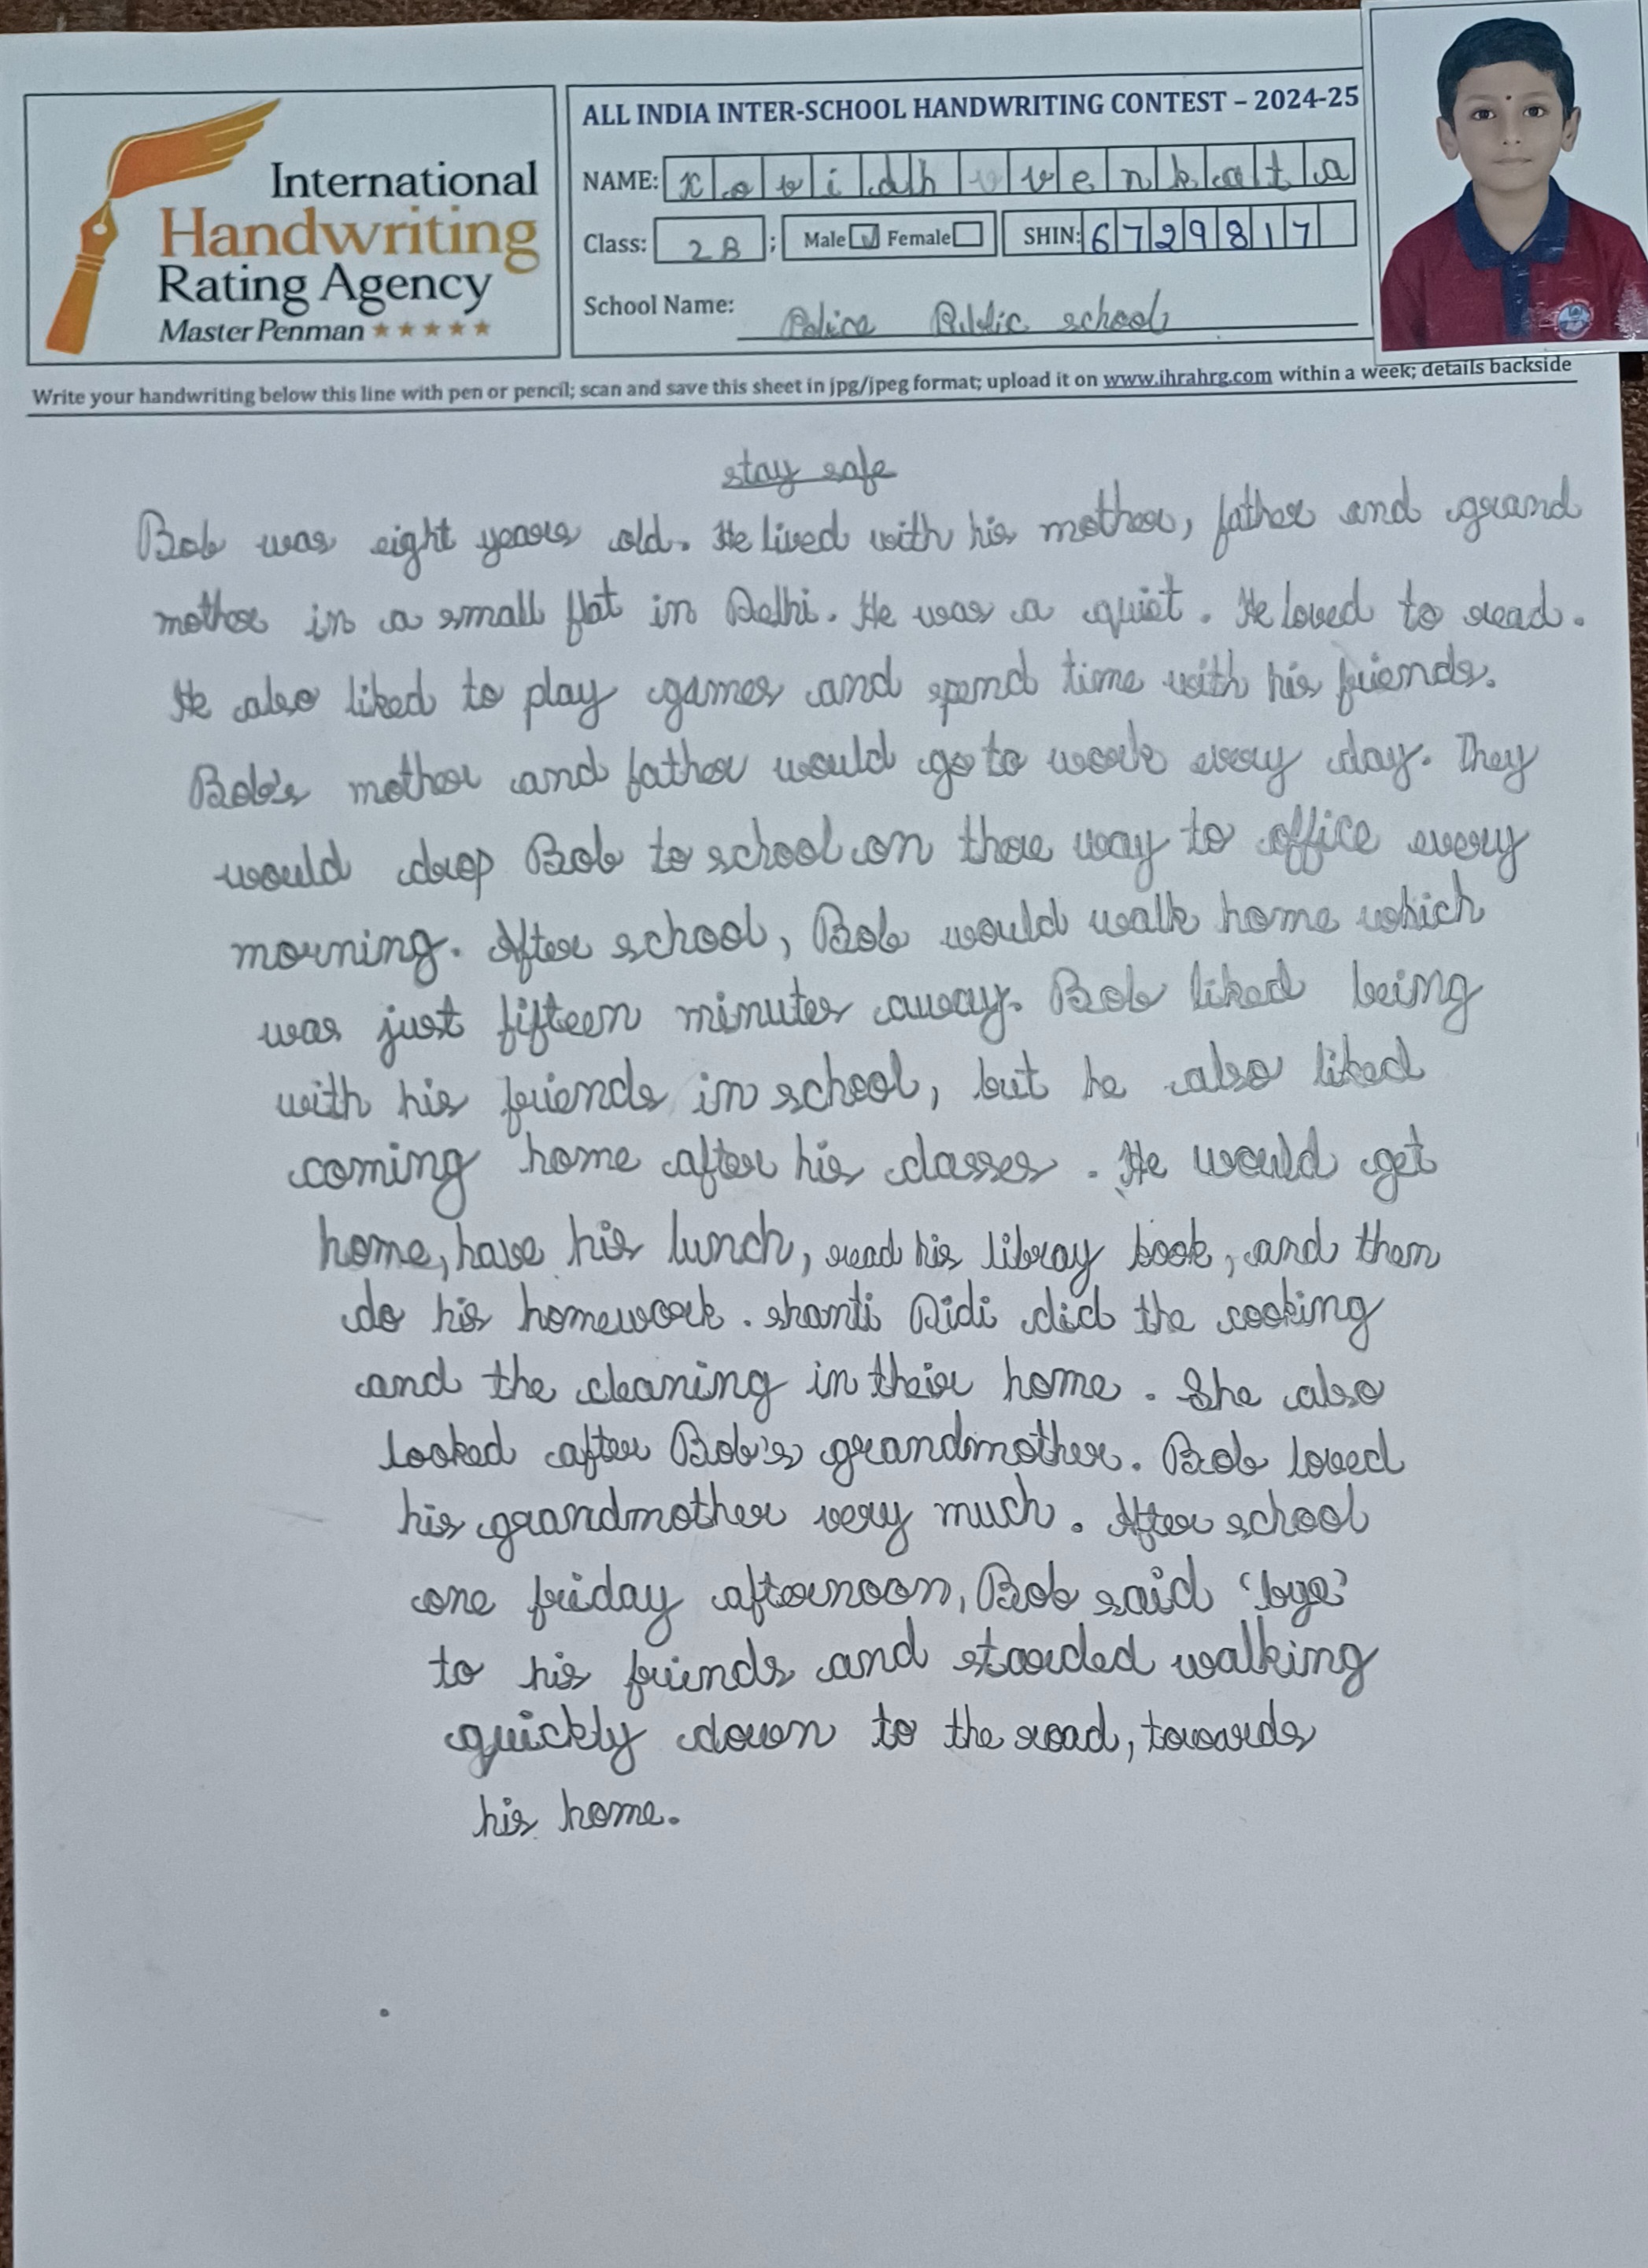 International
Handwriting
Rating Agency
Master Penman ★★★★★
ALL INDIA INTER-SCHOOL HANDWRITING CONTEST – 2024-25
NAME: kovidh v venkata
Class: 2B ; Male ☑ Female ☐ SHIN: 6729817
School Name: Police Public school
Write your handwriting below this line with pen or pencil; scan and save this sheet in jpg/jpeg format; upload it on www.ihrahrg.com within a week; details backside
stay safe
Bob was eight years old. He lived with his mother, father and grand
mother in a small flat in Delhi. He was a quiet. He loved to read.
He also liked to play games and spend time with his friends.
Bob's mother and father would go to work every day. They
would drop Bob to school on there way to office every
morning. After school, Bob would walk home which
was just fifteen minutes away. Bob liked being
with his friends in school, but he also liked
coming home after his classes. He would get
home, have his lunch, read his libray book, and then
do his homework. shanti Didi did the cooking
and the cleaning in their home. She also
looked after Bob's grandmother. Bob loved
his grandmother very much. After school
one friday afternoon, Bob said 'bye'
to his friends and starded walking
quickly down to the road, towards
his home.